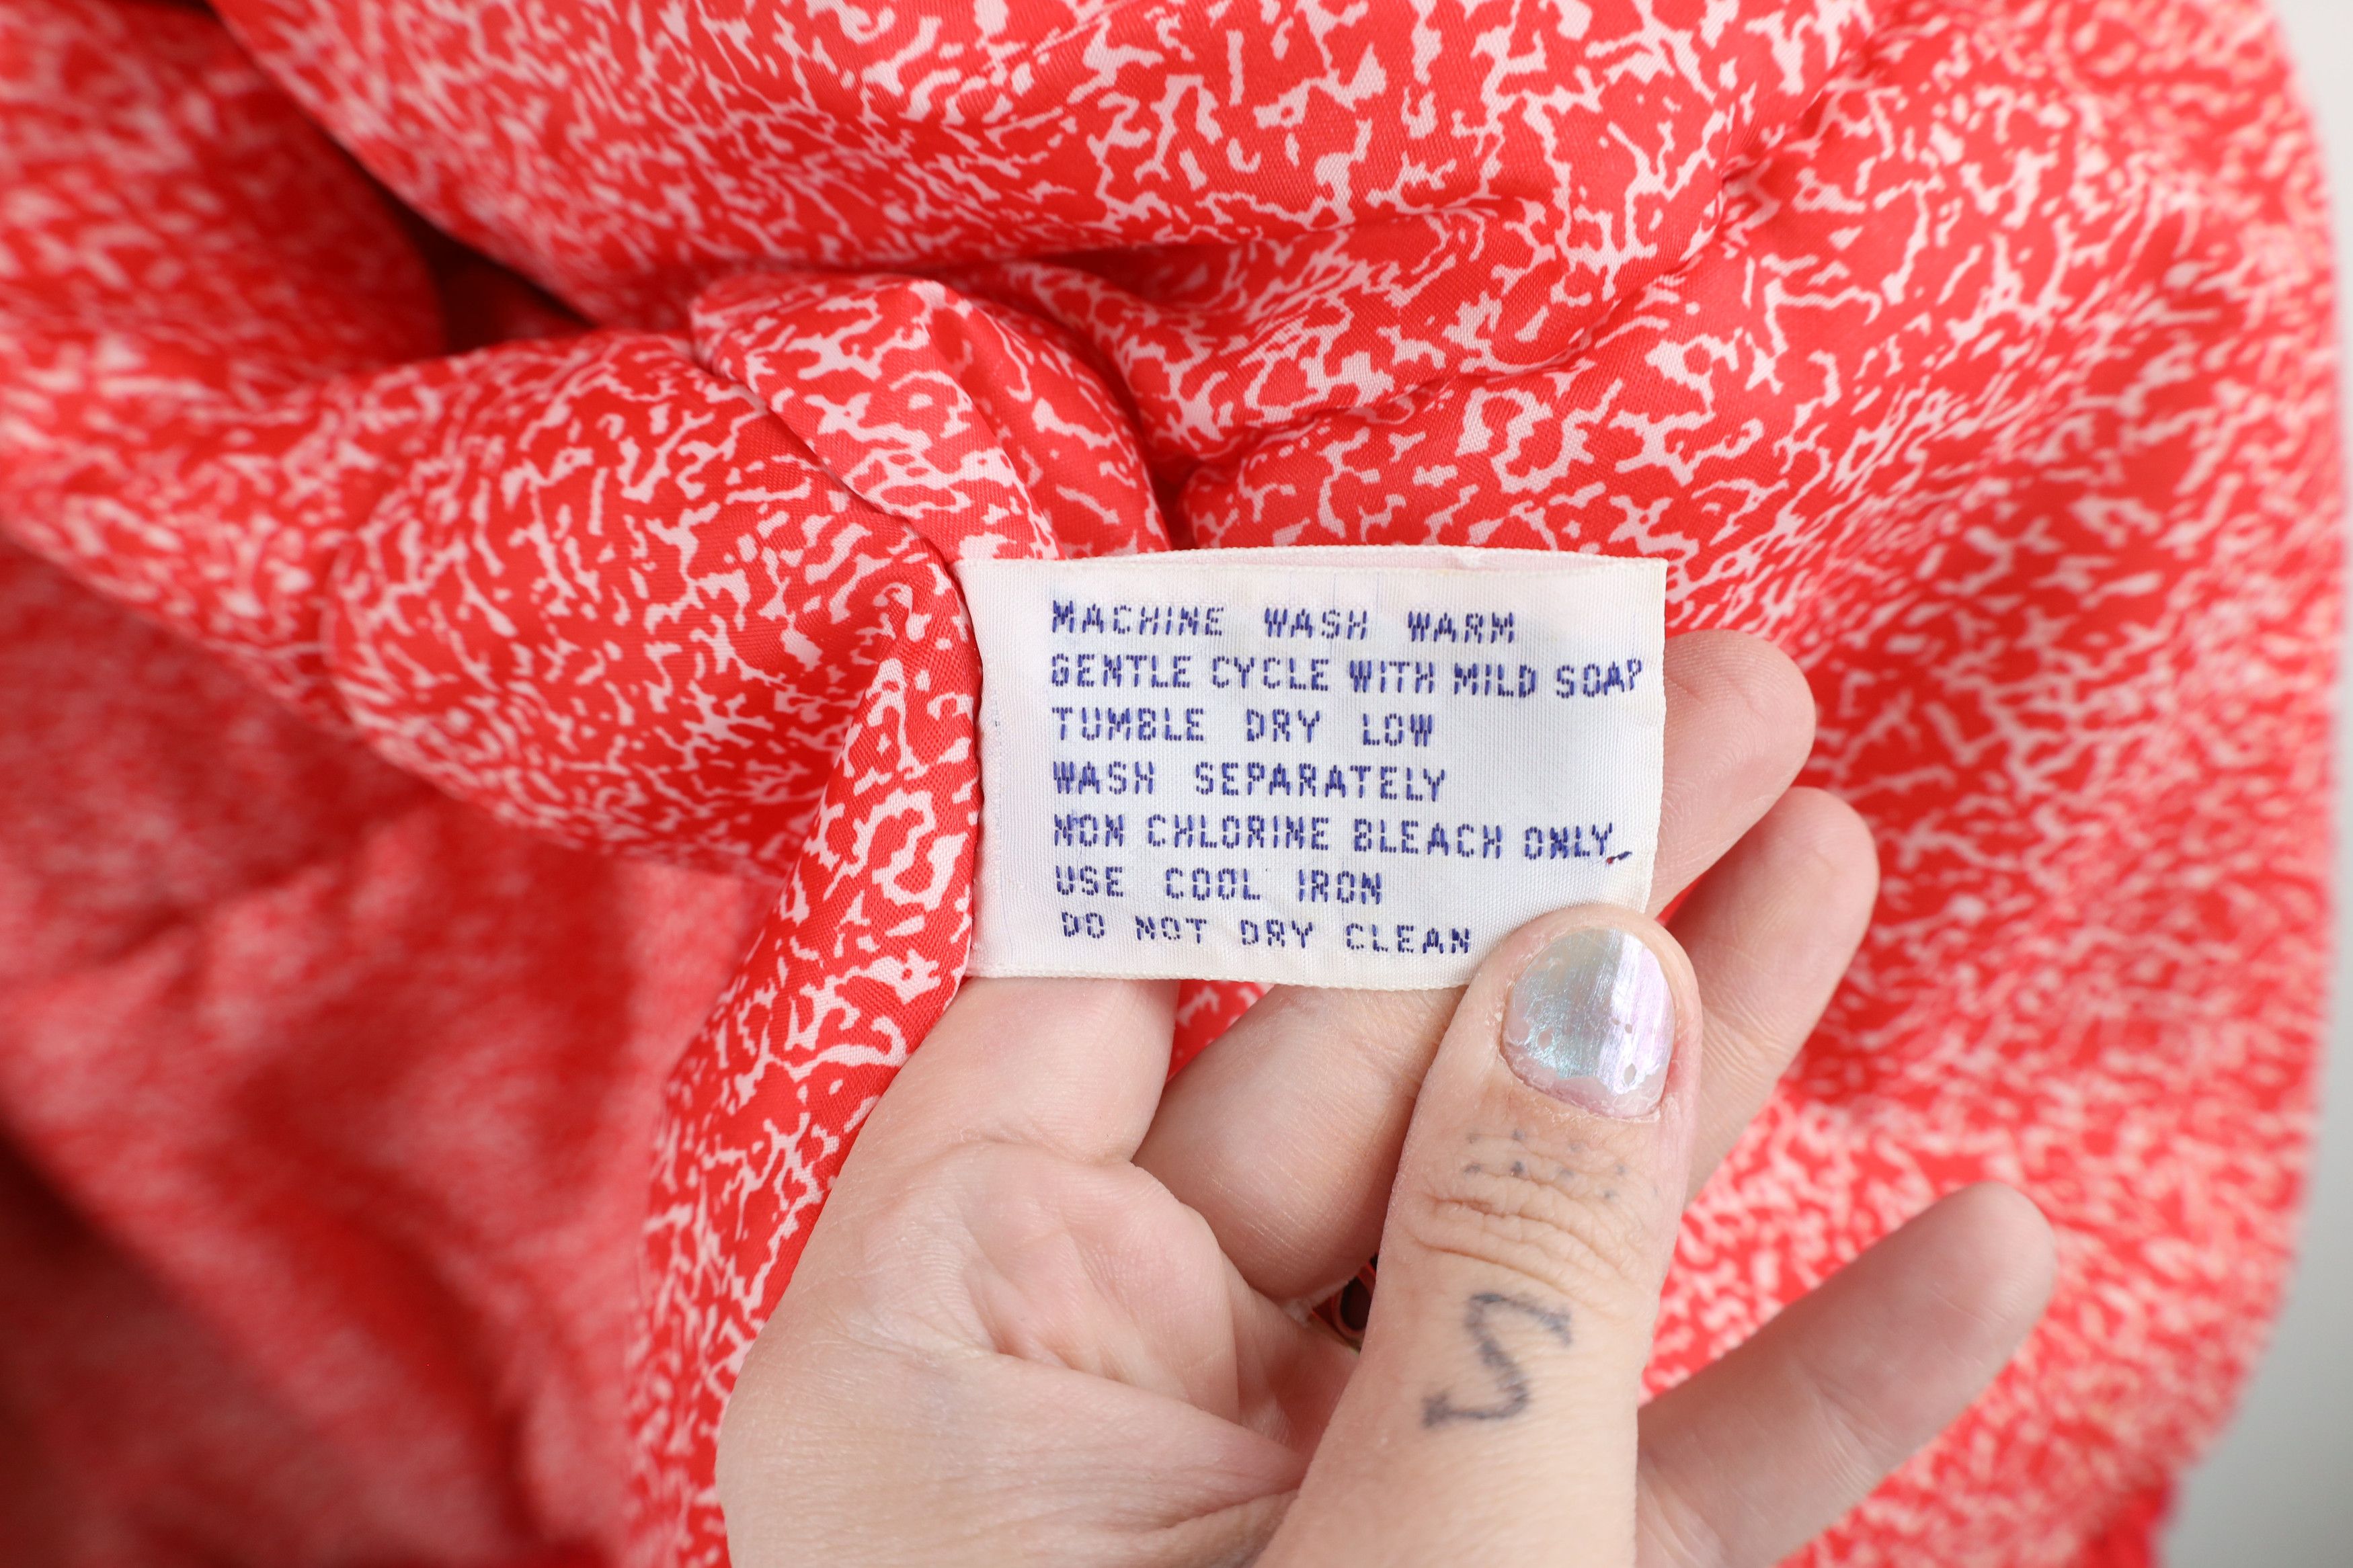 MACHINE WASH WARM
GENTLE CYCLE WITH MILD SOAP
TUMBLE DRY LOW
WASH SEPARATELY
NON CHLORINE BLEACH ONLY
USE COOL IRON
DO NOT DRY CLEAN